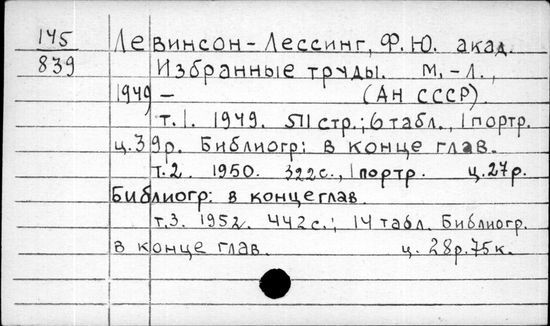 145 Левинсон-Лессинг, Ф.Ю. акад.
839 Избранные труды. М.-Л.,
1949 — (Ан СССР).
т.1. 1949. 511 стр.; 6 табл., 1 портр.
ц.39р. Библиогр: в конце глав.
т.2. 1950. 322с., 1 портр. ц.27р.
Библиогр: в конце глав.
т.3. 1952. 442с.; 14 табл. Библиогр.
в конце глав. ц. 28р.75к.